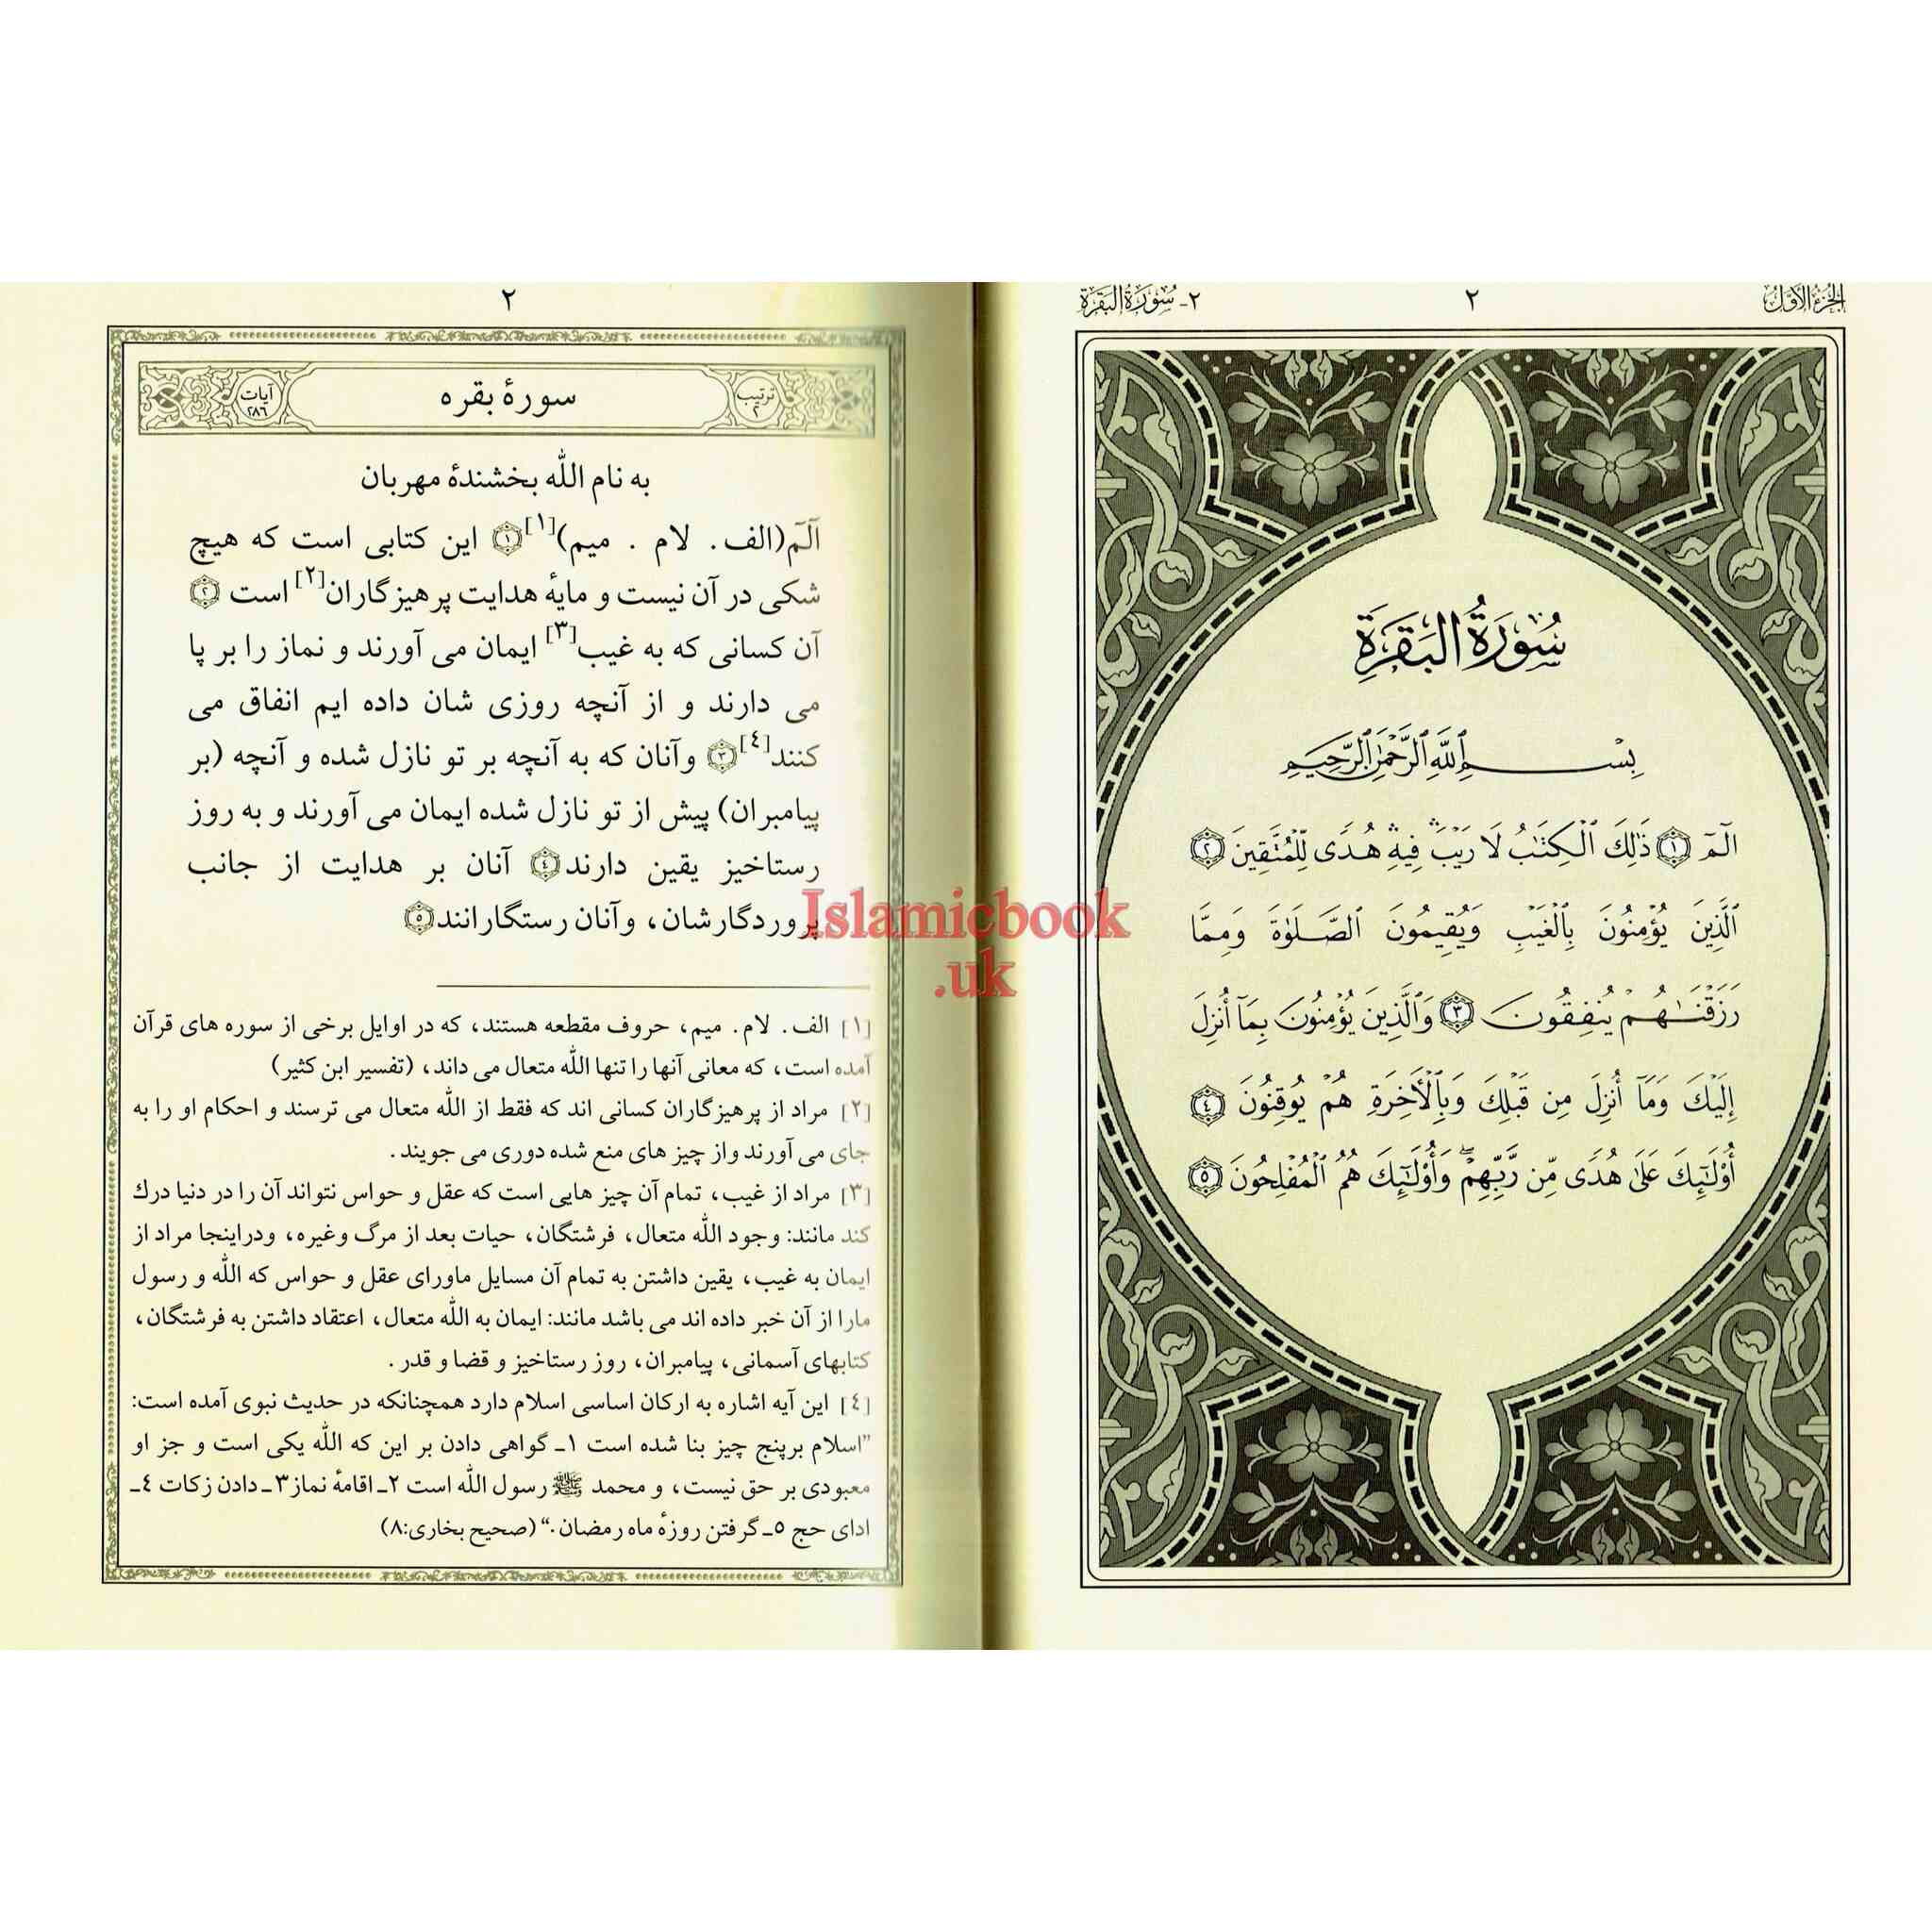 الجزء الأول
٢
٢- سورة البقرة
سُورَةُ البَقَرَةِ
بِسْمِ ٱللَّهِ ٱلرَّحْمَٰنِ ٱلرَّحِيمِ
الٓمٓ ١ ذَٰلِكَ ٱلْكِتَٰبُ لَا رَيْبَ ۛ فِيهِ ۛ هُدًى لِّلْمُتَّقِينَ ٢
ٱلَّذِينَ يُؤْمِنُونَ بِٱلْغَيْبِ وَيُقِيمُونَ ٱلصَّلَوٰةَ وَمِمَّا
رَزَقْنَٰهُمْ يُنفِقُونَ ٣ وَٱلَّذِينَ يُؤْمِنُونَ بِمَآ أُنزِلَ
إِلَيْكَ وَمَآ أُنزِلَ مِن قَبْلِكَ وَبِٱلْأَخِرَةِ هُمْ يُوقِنُونَ ٤
أُوْلَٰٓئِكَ عَلَىٰ هُدًى مِّن رَّبِّهِمْ ۖ وَأُوْلَٰٓئِكَ هُمُ ٱلْمُفْلِحُونَ ٥
٢
ترتیب ٢ سورهٔ بقره آیات ٢٨٦
به نام الله بخشندهٔ مهربان
آلٓمٓ(الف. لام . میم)[١] ١ این کتابی است که هیچ
شکی در آن نیست و مایهٔ هدایت پرهیزگاران[٢] است ٢
آن کسانی که به غیب[٣] ایمان می آورند و نماز را بر پا
می دارند و از آنچه روزی شان داده ایم انفاق می
کنند[٤] ٣ وآنان که به آنچه بر تو نازل شده و آنچه (بر
پیامبران) پیش از تو نازل شده ایمان می آورند و به روز
رستاخیز یقین دارند ٤ آنان بر هدایت از جانب
پروردگارشان، وآنان رستگارانند ٥
[١] الف. لام. میم، حروف مقطعه هستند، که در اوایل برخی از سوره های قرآن
آمده است، که معانی آنها را تنها الله متعال می داند، (تفسیر ابن کثیر)
[٢] مراد از پرهیزگاران کسانی اند که فقط از الله متعال می ترسند و احکام او را به
جای می آورند واز چیز های منع شده دوری می جویند.
[٣] مراد از غیب، تمام آن چیز هایی است که عقل و حواس نتواند آن را در دنیا درك
کند مانند: وجود الله متعال، فرشتگان، حیات بعد از مرگ وغیره، ودراینجا مراد از
ایمان به غیب، یقین داشتن به تمام آن مسایل ماورای عقل و حواس که الله و رسول
مارا از آن خبر داده اند می باشد مانند: ایمان به الله متعال، اعتقاد داشتن به فرشتگان،
کتابهای آسمانی، پیامبران، روز رستاخیز و قضا و قدر.
[٤] این آیه اشاره به ارکان اساسی اسلام دارد همچنانکه در حدیث نبوی آمده است:
"اسلام برپنج چیز بنا شده است ١ـ گواهی دادن بر این که الله یکی است و جز او
معبودی بر حق نیست، و محمد ﷺ رسول الله است ٢ـ اقامهٔ نماز ٣ـ دادن زکات ٤ـ
ادای حج ٥ـ گرفتن روزهٔ ماه رمضان." (صحیح بخاری:٨)
Islamicbook
.uk